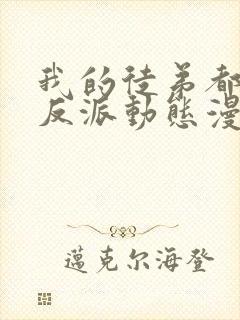 我的徒弟都
反派動態漫
邁克尔海登